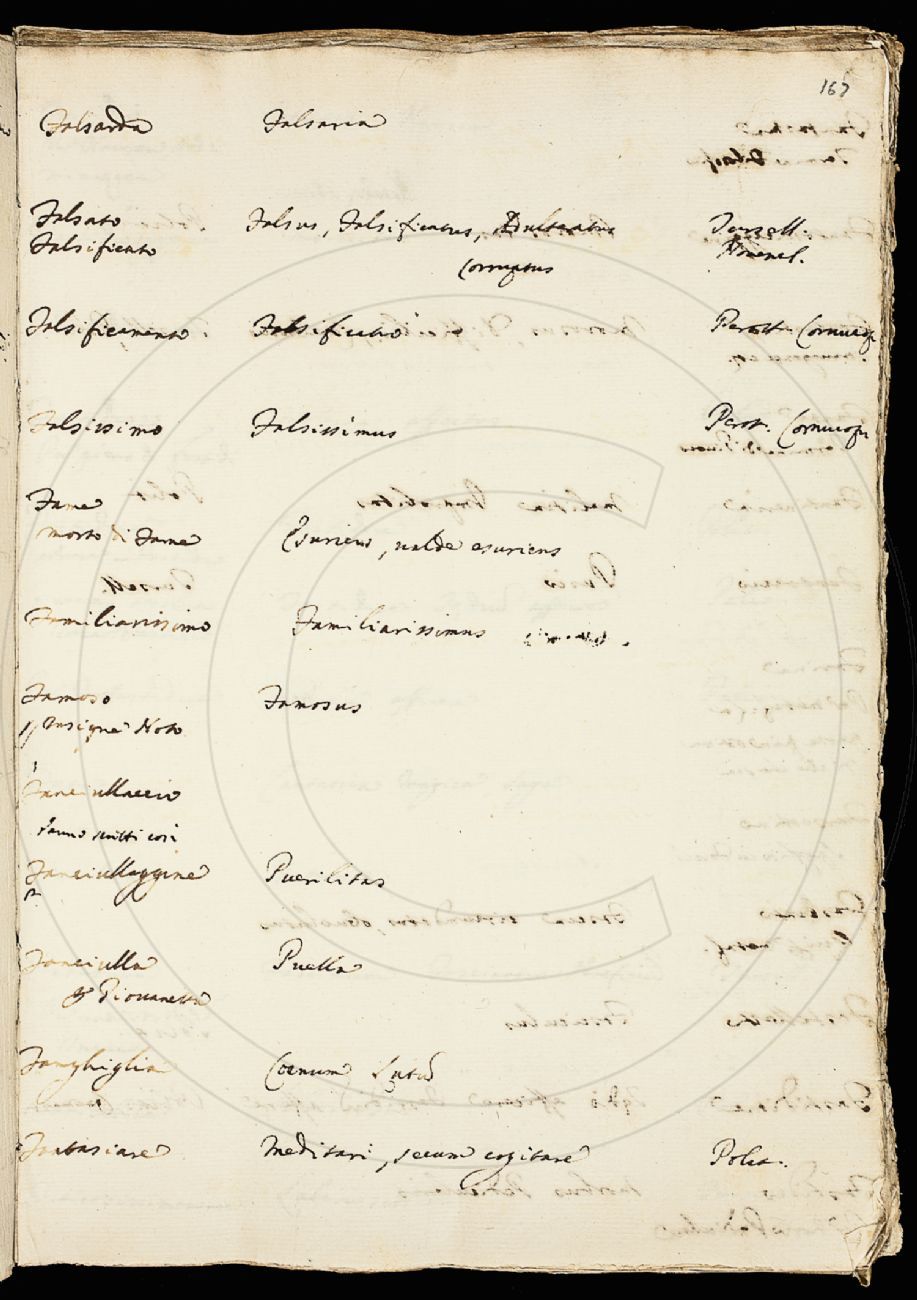 167
Falsarda Falsaria
Falsato Falsus, Falsificatus, Adulteratus Turzell.
Falsificato Corruptus
Falsificamento Falsificatio Perott. Cornucop.
Falsissimo Falsissimus Perot. Cornucop.
Fame
morto di Fame Esuriens, ualde esuriens
Familiarissimo Familiarissimus
Famoso Famosus
Insigne Noto
Fanciullaccio
Fanciullaggine Puerilitas
Fanciulla Puella
Giouanetta
Fanghiglia Coenum, Lutū
Fantasiare Meditari, secum cogitare Polia.